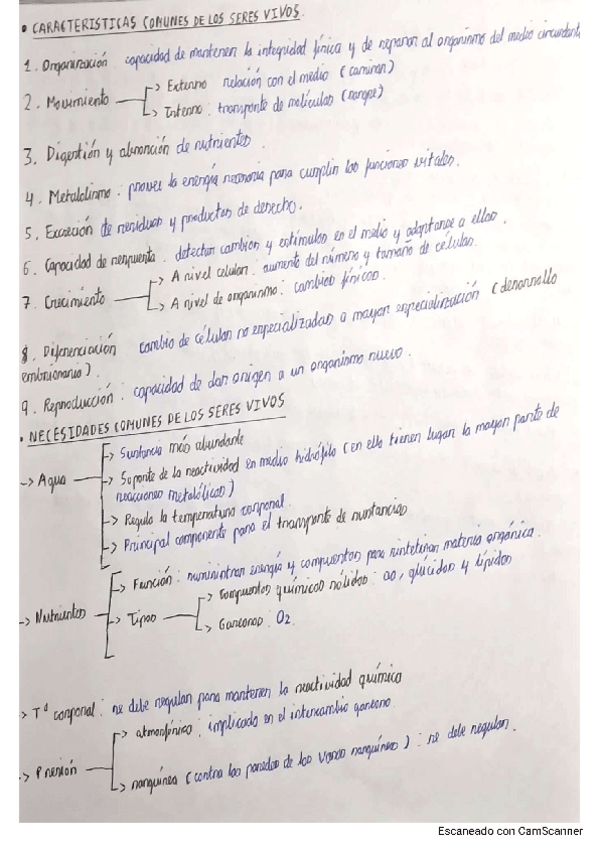 • CARACTERISTICAS COMUNES DE LOS SERES VIVOS.
1. Organización capacidad de mantener la integridad física y de reparar al organismo del medio circundante
2. Movimiento -> Externo relación con el medio (caminar)
-> Interno: transporte de moléculas (sangre)
3. Digestión y absorción de nutrientes.
4. Metabolismo: provee la energía necesaria para cumplir las funciones vitales.
5. Excreción de residuos y productos de desecho.
6. Capacidad de respuesta. detectar cambios y estímulos en el medio y adaptarse a ellos.
7. Crecimiento -> A nivel celular: aumento del número y tamaño de células.
-> A nivel de organismo: cambios físicos.
8. Diferenciación cambio de células no especializadas a mayor especialización (desarrollo
embrionario).
9. Reproducción: capacidad de dar origen a un organismo nuevo.
• NECESIDADES COMUNES DE LOS SERES VIVOS
-> Agua -> Sustancia más abundante
-> Soporte de la reactividad en medio hidrófilo (en ella tienen lugar la mayor parte de
reacciones metabólicas)
-> Regula la temperatura corporal.
-> Principal componente para el transporte de sustancias
-> Nutrientes -> Función: suministran energía y compuestos para sintetizar materia orgánica.
-> Tipos -> Compuestos químicos sólidos: aa, glúcidos y lípidos
-> Gaseosos: O2.
-> Tª corporal: se debe regular para mantener la reactividad química
-> Presión -> atmosférica: implicada en el intercambio gaseoso
-> sanguínea (contra las paredes de los vasos sanguíneos): se debe regular.
Escaneado con CamScanner